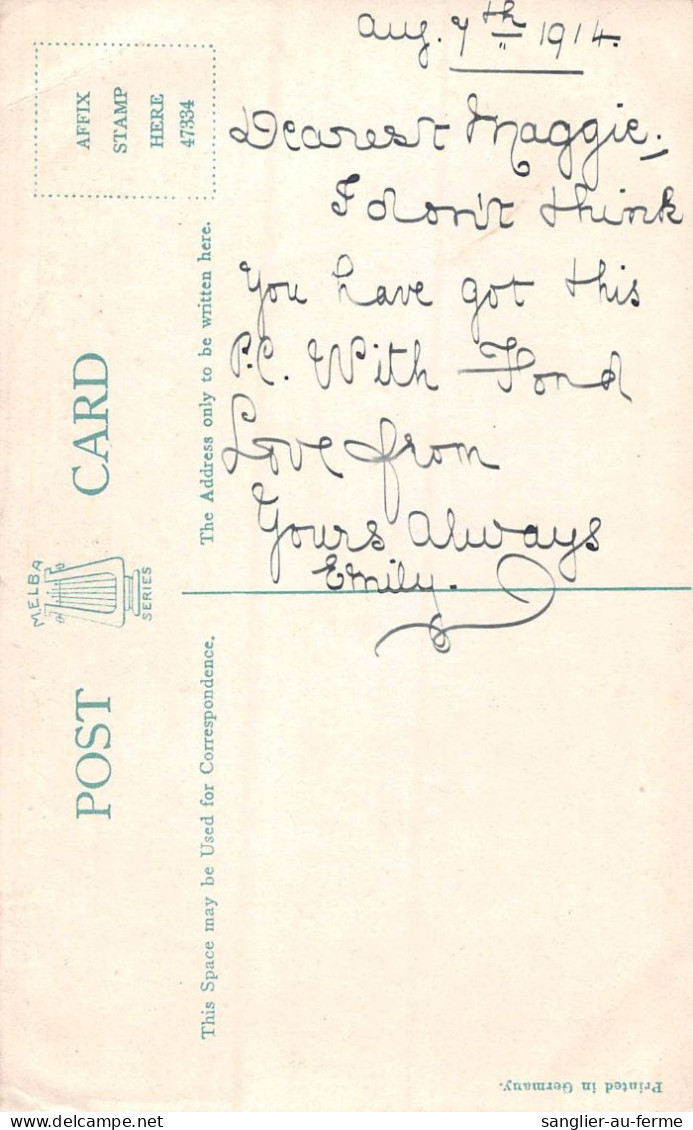 Aug. 7th 1914.
Dearest Maggie.
I don't think
You have got this
P.C. With Fond
Love from
Yours Always
Emily.
AFFIX
STAMP
HERE
47334
POST CARD
MELBA
SERIES
The Address only to be written here.
This Space may be Used for Correspondence.
Printed in Germany.
sanglier-au-ferme